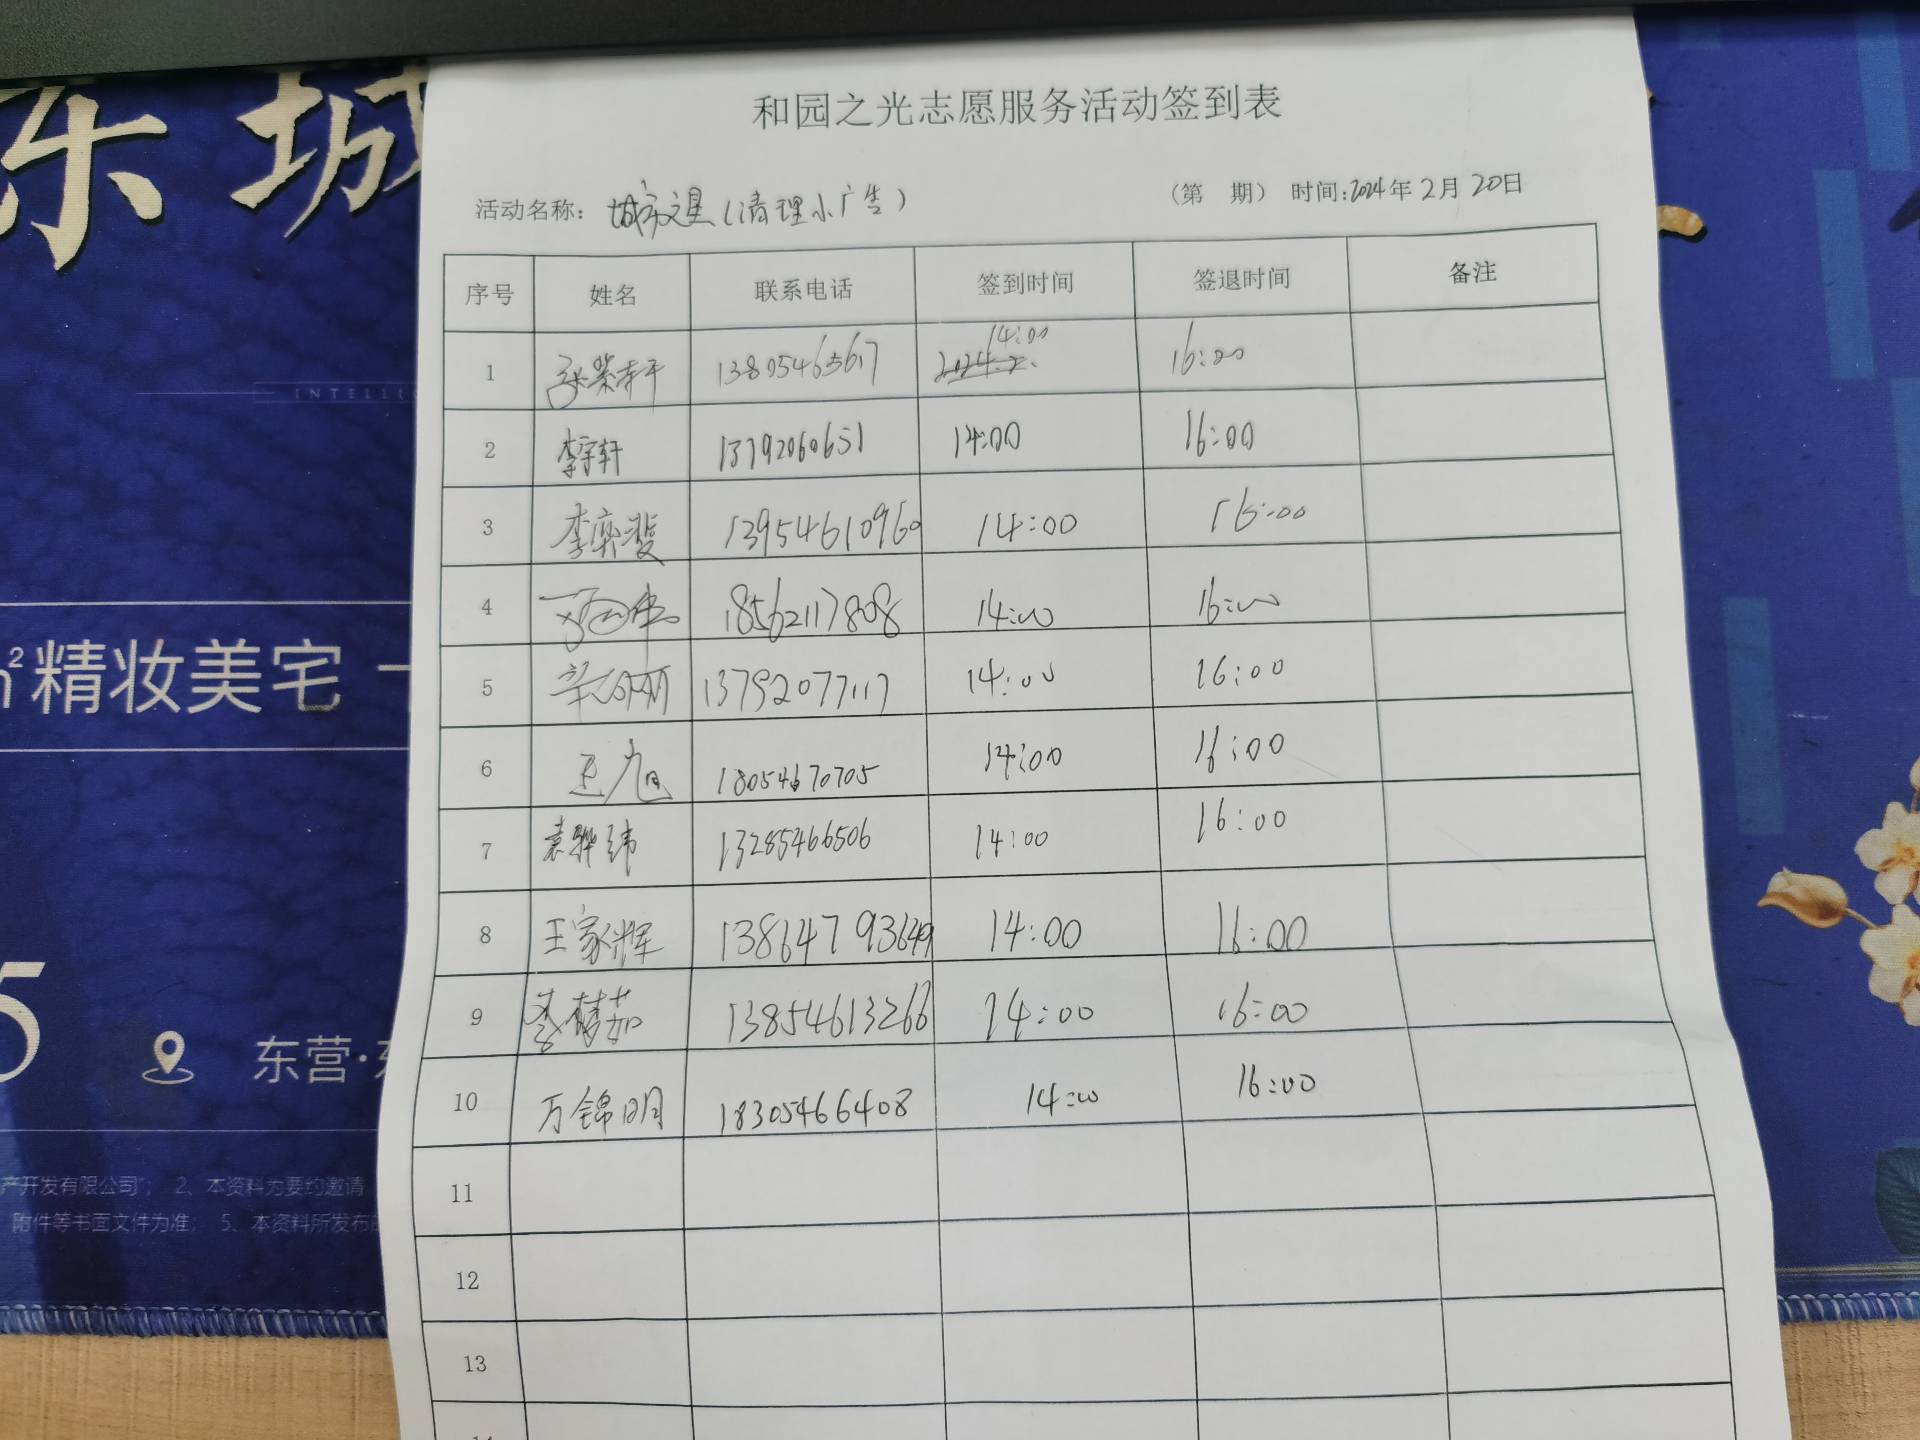 东城
和园之光志愿服务活动签到表
活动名称: 城市之星(清理小广告) (第 期) 时间:2024年2月20日
序号 姓名 联系电话 签到时间 签退时间 备注
1 14:00 16:00
2 李宇轩 13792060651 14:00 16:00
3 李奕斐 13954610960 14:00 16:00
4 18562117808 14:00 16:00
5 13792077117 14:00 16:00
6 王旭 18054670705 14:00 16:00
7 袁骅纬 13285466506 14:00 16:00
8 王家辉 13864793649 14:00 16:00
9 李梦茹 13854613266 14:00 16:00
10 万锦明 18305466408 14:00 16:00
11
12
13
14
INTELLEC
m²精妆美宅
5
东营·东
产开发有限公司"; 2、本资料为要约邀请
附件等书面文件为准; 5、本资料所发布的